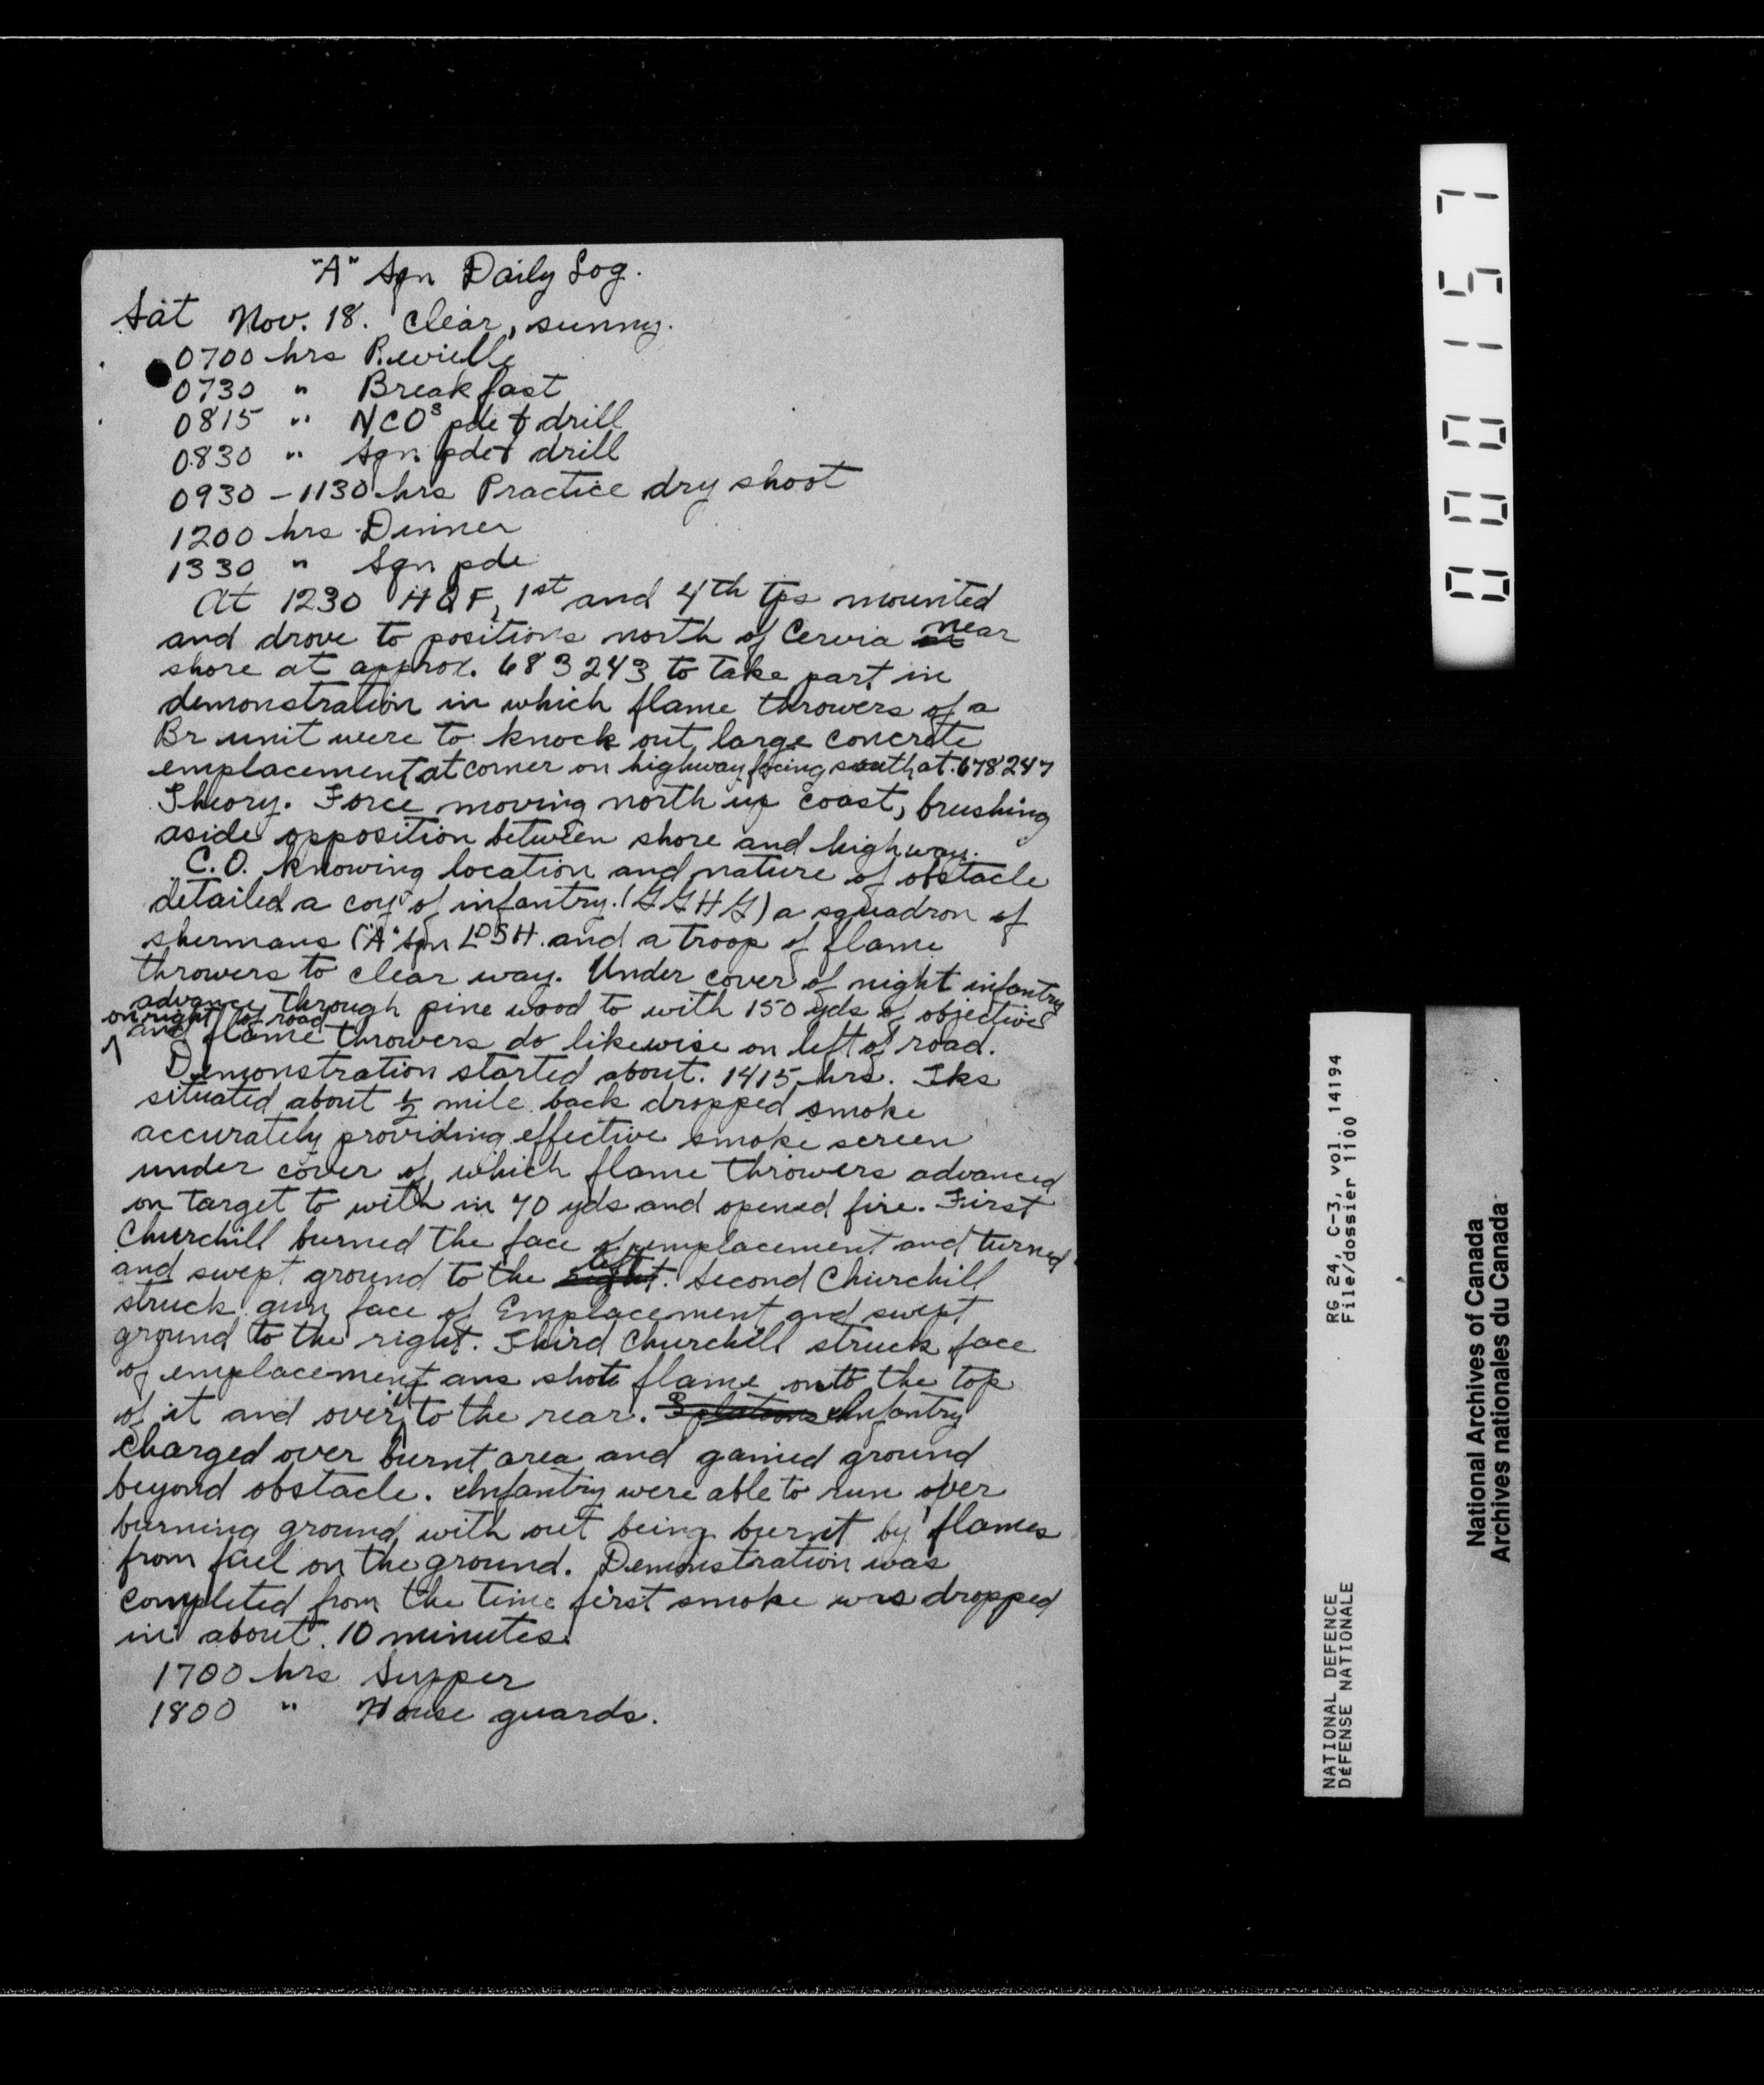 "A" Sqn Daily Log.
Sat Nov. 18. Clear, sunny.
0700 hrs Revielle
0730 " Breakfast
0815 " NCOs pde & drill
0830 " Sqn pde & drill
0930 - 1130 hrs Practice dry shoot
1200 hrs Dinner
1330 " Sqn pde
At 1230 HQF, 1st and 4th tps mounted
and drove to positions north of Cervia near
shore at approx. 683243 to take part in
demonstration in which flame throwers of a
Br unit were to knock out large concrete
emplacement at corner on highway facing south at 678247
Theory. Force moving north up coast, brushing
aside opposition between shore and highway.
C.O. knowing location and nature of obstacle
detailed a coy of infantry. (GGHG) a squadron of
shermans ("A" Sqn LDSH. and a troop of flame
throwers to clear way. Under cover of night infantry
advance through pine wood to with 150 yds of objective
on right of road
and flame throwers do likewise on left of road.
Demonstration started about 1415 hrs. Tks
situated about ½ mile back dropped smoke
accurately providing effective smoke screen
under cover of which flame throwers advanced
on target to with in 70 yds and opened fire. First
Churchill burned the face of emplacement and turned
and swept ground to the right left. Second Churchill
struck gun face of Emplacement and swept
ground to the right. Third Churchill struck face
of emplacement ans shot flame onto the top
of it and over it to the rear. 3 platoons Infantry
charged over burnt area and gained ground
beyond obstacle. Infantry were able to run over
burning ground with out being burnt by flames
from fuel on the ground. Demonstration was
completed from the time first smoke was dropped
in about 10 minutes.
1700 hrs Supper
1800 " House guards.
000157
RG 24, C-3, vol. 14194
File/dossier 1100
NATIONAL DEFENCE
DÉFENSE NATIONALE
National Archives of Canada
Archives nationales du Canada